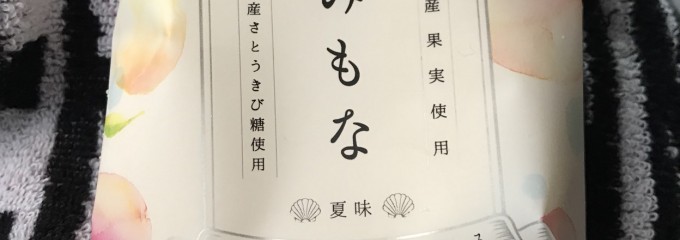 産果実使用
みもな
産さとうきび糖使用
夏味